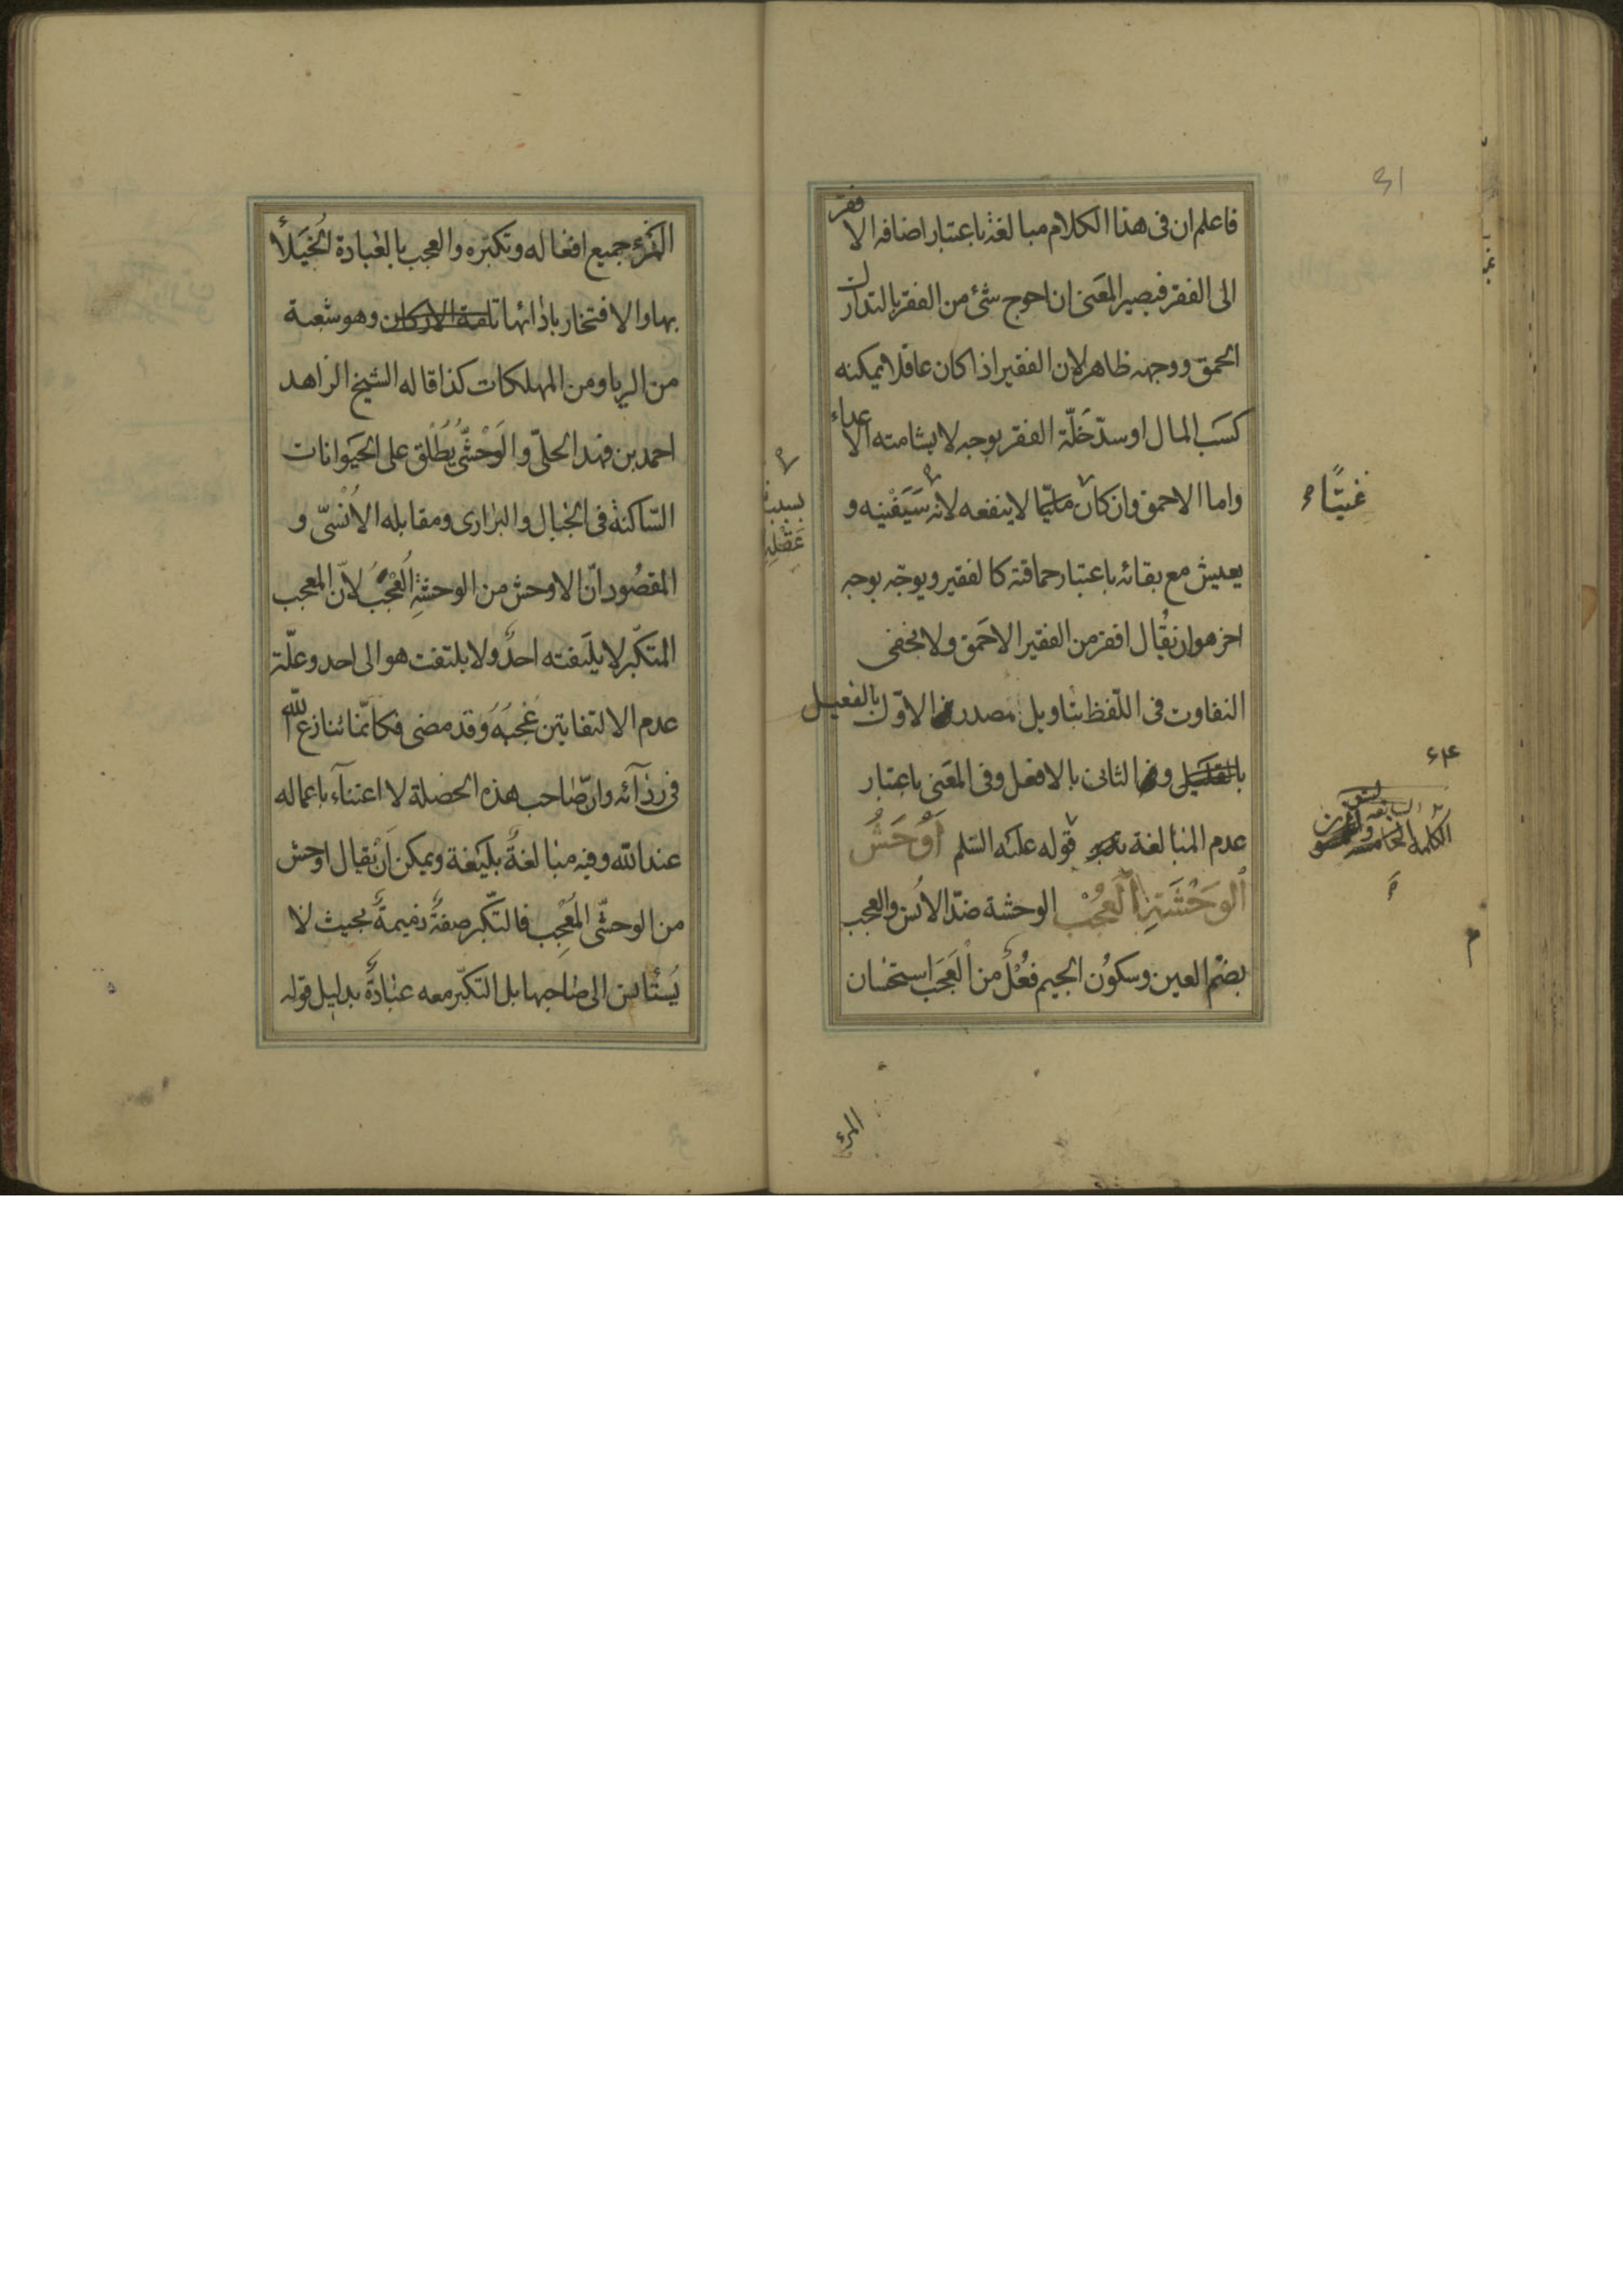 31
فاعلم ان فى هذا الكلام مبالغة باعتبار اضافه الافقر
الى الفقر فيصير المعنى ان احوج شئ من الفقر بالتدارك
الحمق ووجهه ظاهر لان الفقير اذا كان عاقلا يمكنه
كسب المال او سدّ خَلّة الفقر بوجه لا يشامته الاعداء
واما الاحمق وان كان مليّا لا ينفعه لانه سَيَفْنيه و
غنيّا
بسبب
عقله
يعيش مع بقائه باعتبار حماقته كالفقير ويوجّه بوجه
اخر هو ان يُقال افقر من الفقير الاحمق ولا يخفى
التفاوت فى اللّفظ بتاويل مصدر الاوّل بالفعيل
بالفعيل و الثانى بالافعل وفى المعنى باعتبار
عدم المبالغة قوله عليه السّلم اَوْحَشُ
۶۴
الكلمة
الوَحْشَةِ العُجْبُ الوحشة ضدّ الاُنس والعجب
م
بضمّ العين وسكون الجيم فُعْلٌ من العَجَب استحسان
المرء
المرء جميع افعاله وتكبّره والعجب بالعبادة الخُيَلاء
بها والافتخار باذائها تامة الاركان وهو شعبة
من الريا ومن المهلكات كذا قاله الشيخ الزاهد
احمد بن فهد الحلىّ والوَحْشىُّ يُطْلق على الحَيَوانات
السّاكنة فى الجبال والبرارى ومقابله الاُنْسىّ و
المقصُود انّ الاوحش من الوحشةِ العُجْبُ لانّ المعجب
المتكبّر لا يلتفته احدٌ ولا يلتفت هو الى احد وعلّة
عدم الالتفاتين عُجبُهُ وقد مضى فكانّما ننازع الله
فى رِدَآئه وانّ صاحب هذه الخصلة لا اعتنآء باعماله
عند الله وفيه مبالغةٌ بليغة ويمكن اَنْ يقال اوحش
من الوحشىّ المُعْجِب فالتّكبر صفةٌ ذميمةٌ بحيث لا
يَستأنس الى صاحبها بل التكبّر معه عبادةٌ بدليل قوله